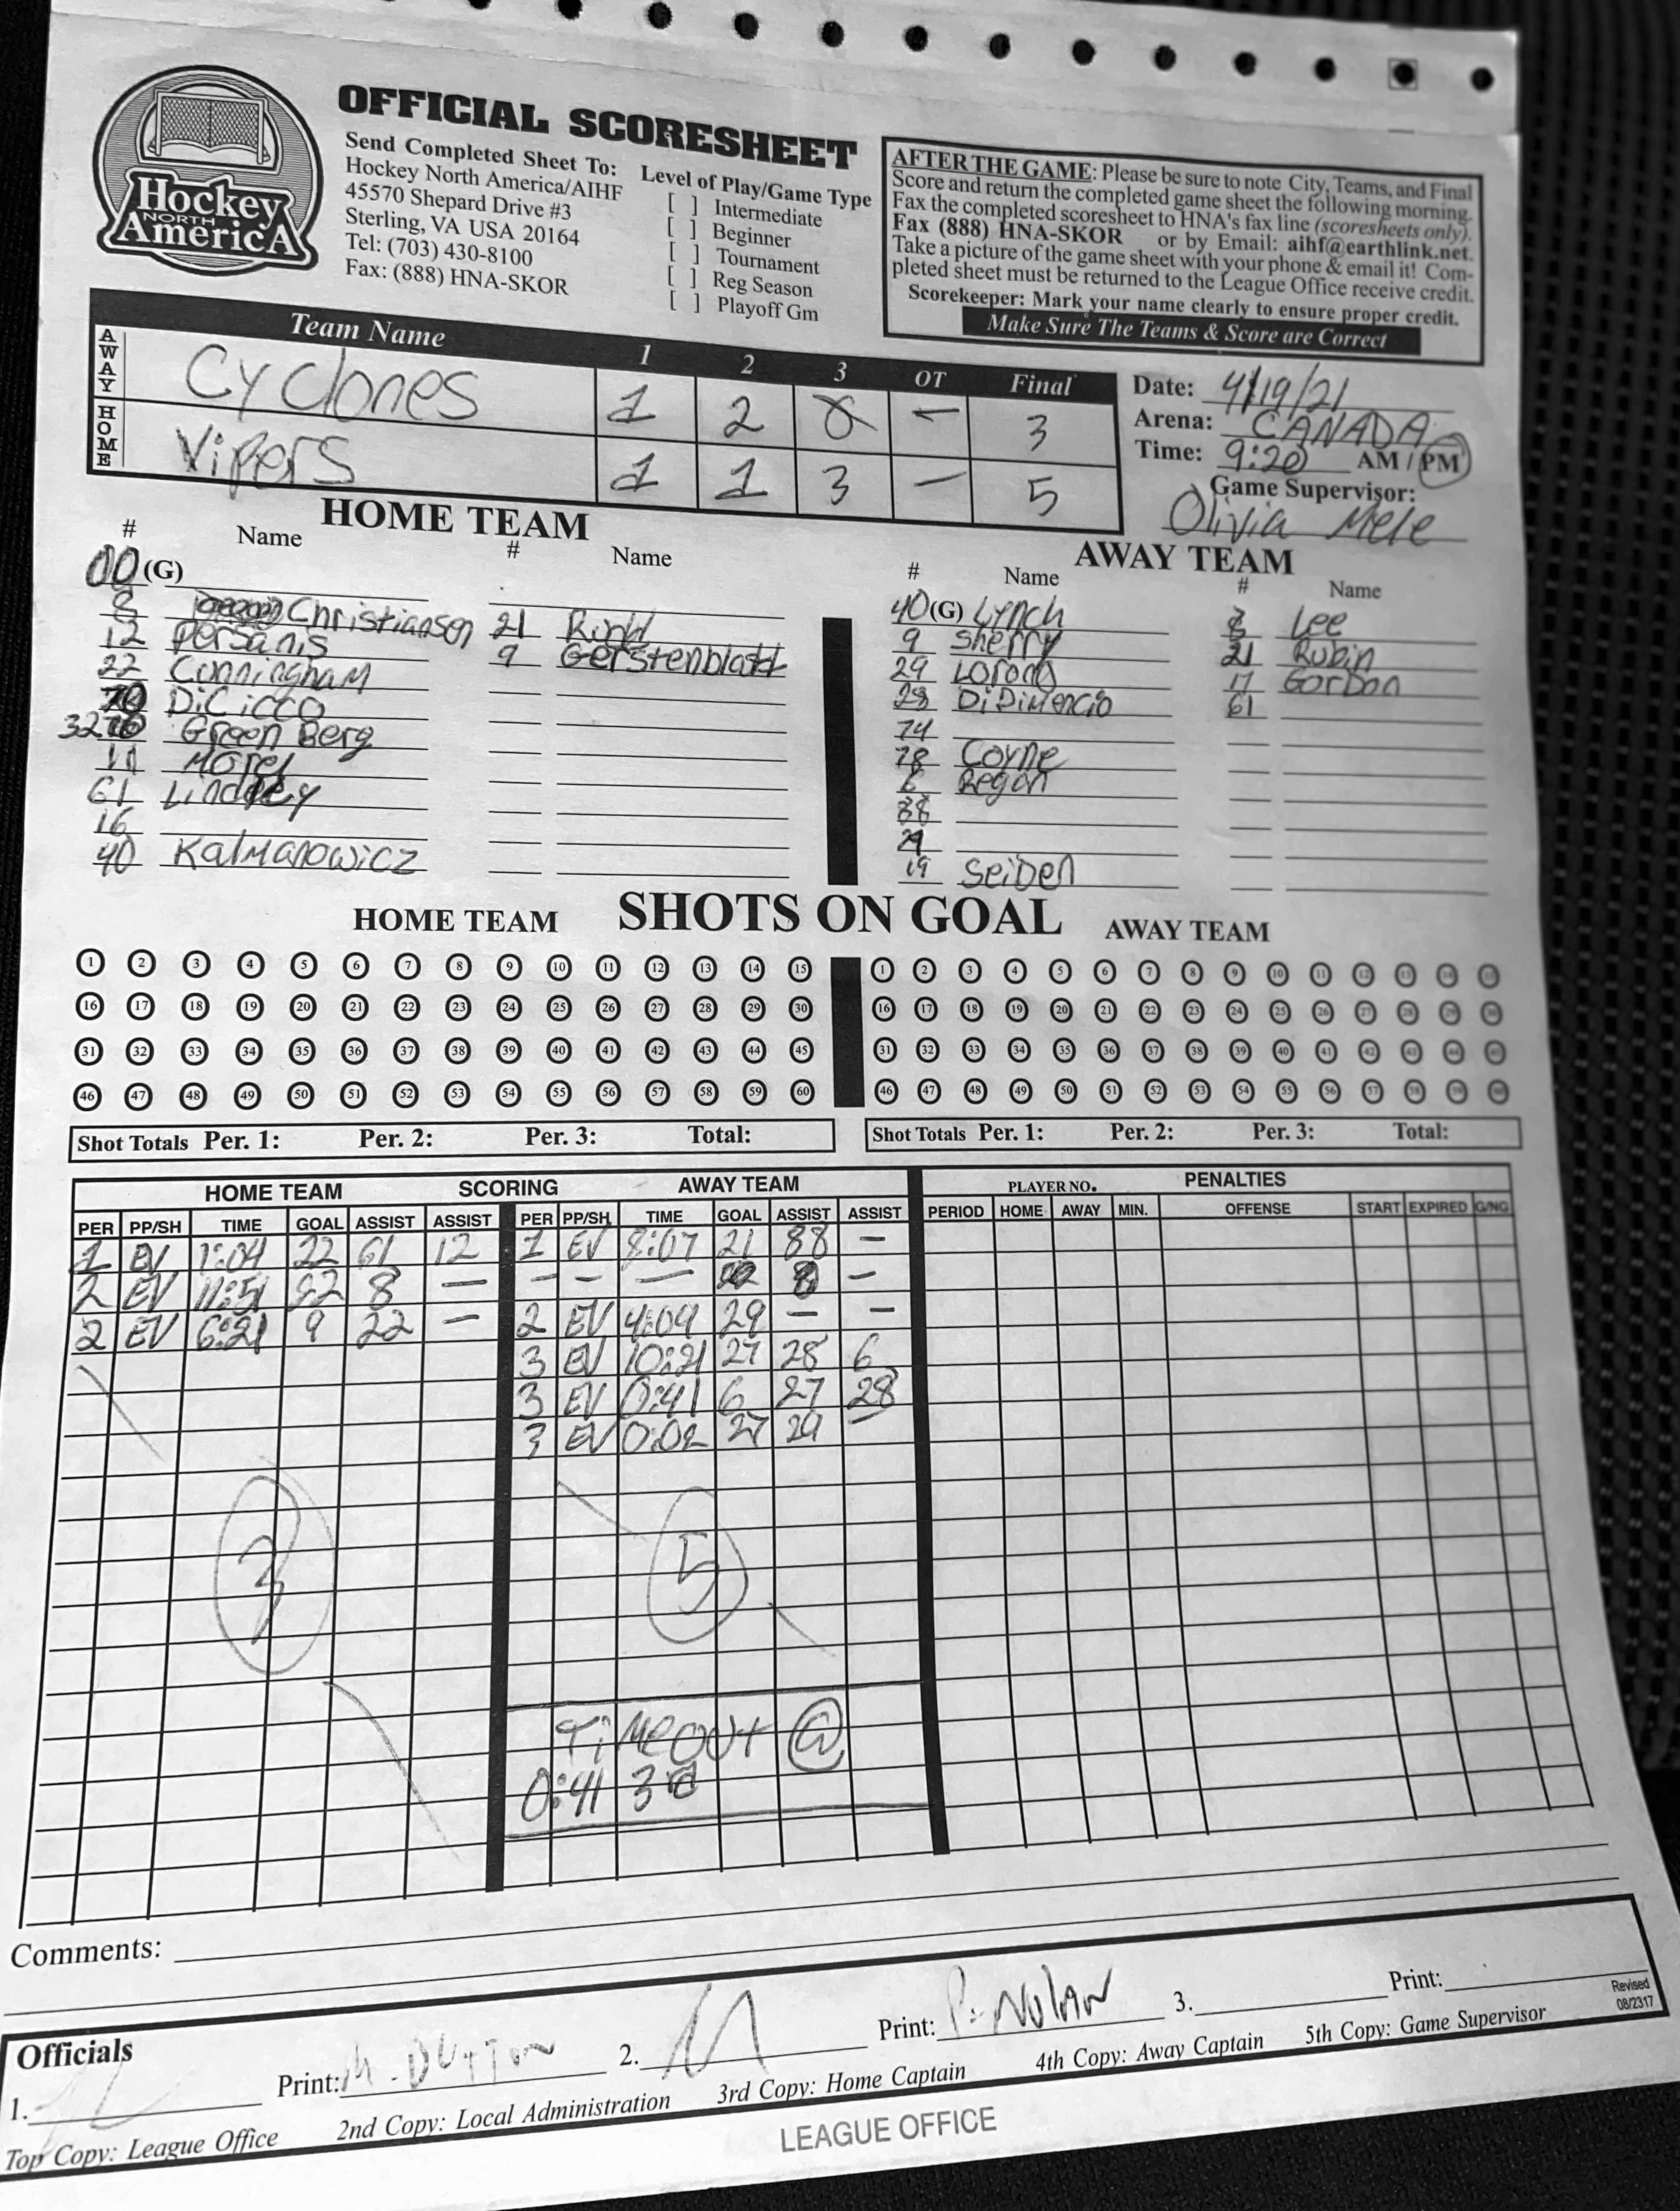 OFFICIAL SCORESHEET
Hockey
NORTH
AmericA
Send Completed Sheet To:
Hockey North America/AIHF
45570 Shepard Drive #3
Sterling, VA USA 20164
Tel: (703) 430-8100
Fax: (888) HNA-SKOR
Level of Play/Game Type
[ ] Intermediate
[ ] Beginner
[ ] Tournament
[ ] Reg Season
[ ] Playoff Gm
AFTER THE GAME: Please be sure to note City, Teams, and Final
Score and return the completed game sheet the following morning.
Fax the completed scoresheet to HNA's fax line (scoresheets only).
Fax (888) HNA-SKOR or by Email: aihf@earthlink.net.
Take a picture of the game sheet with your phone & email it! Com-
pleted sheet must be returned to the League Office receive credit.
Scorekeeper: Mark your name clearly to ensure proper credit.
Make Sure The Teams & Score are Correct
Team Name 1 2 3 OT Final
AWAY Cyclones 1 2 0 - 3
HOME Vipers 1 1 3 - 5
Date: 4/19/21
Arena: CANADA
Time: 9:20 AM / PM
Game Supervisor:
Olivia Mele
HOME TEAM
# Name # Name
00 (G)
8 Christiansen 21 Rudd
12 Persanis 9 Gerstenblatt
22 Cunningham
70 DiCicco
32 Green Berg
11 Morel
61 Lindsey
16
40 Kalmanowicz
AWAY TEAM
# Name # Name
40 (G) Lynch 8 Lee
9 Sherry 21 Rubin
29 17 Gordon
28 61
74
78 Coyne
6 Regan
88
19 Seiden
SHOTS ON GOAL
HOME TEAM AWAY TEAM
1 2 3 4 5 6 7 8 9 10 11 12 13 14 15
16 17 18 19 20 21 22 23 24 25 26 27 28 29 30
31 32 33 34 35 36 37 38 39 40 41 42 43 44 45
46 47 48 49 50 51 52 53 54 55 56 57 58 59 60
1 2 3 4 5 6 7 8 9 10 11 12 13 14 15
16 17 18 19 20 21 22 23 24 25 26 27 28 29 30
31 32 33 34 35 36 37 38 39 40 41 42 43 44 45
46 47 48 49 50 51 52 53 54 55 56 57 58 59 60
Shot Totals Per. 1: Per. 2: Per. 3: Total:
Shot Totals Per. 1: Per. 2: Per. 3: Total:
HOME TEAM SCORING AWAY TEAM
PER PP/SH TIME GOAL ASSIST ASSIST PER PP/SH TIME GOAL ASSIST ASSIST
1 EV 1:04 22 61 12 1 EV 8:07 21 88 -
2 EV 11:51 22 8 - - - - -
2 EV 6:21 9 22 - 2 EV 4:09 29 - -
3 EV 10:21 27 28 6
3 EV 0:41 6 27 28
3 EV 0:02 27 29 -
3 5
TIMEOUT @
0:41 3rd
PLAYER NO. PENALTIES
PERIOD HOME AWAY MIN. OFFENSE START EXPIRED G/NG
Comments:
Officials
1. Print: M. DUTTON 2. Print: P. Nolan 3. Print:
Revised
08/2317
Top Copy: League Office 2nd Copy: Local Administration 3rd Copy: Home Captain 4th Copy: Away Captain 5th Copy: Game Supervisor
LEAGUE OFFICE